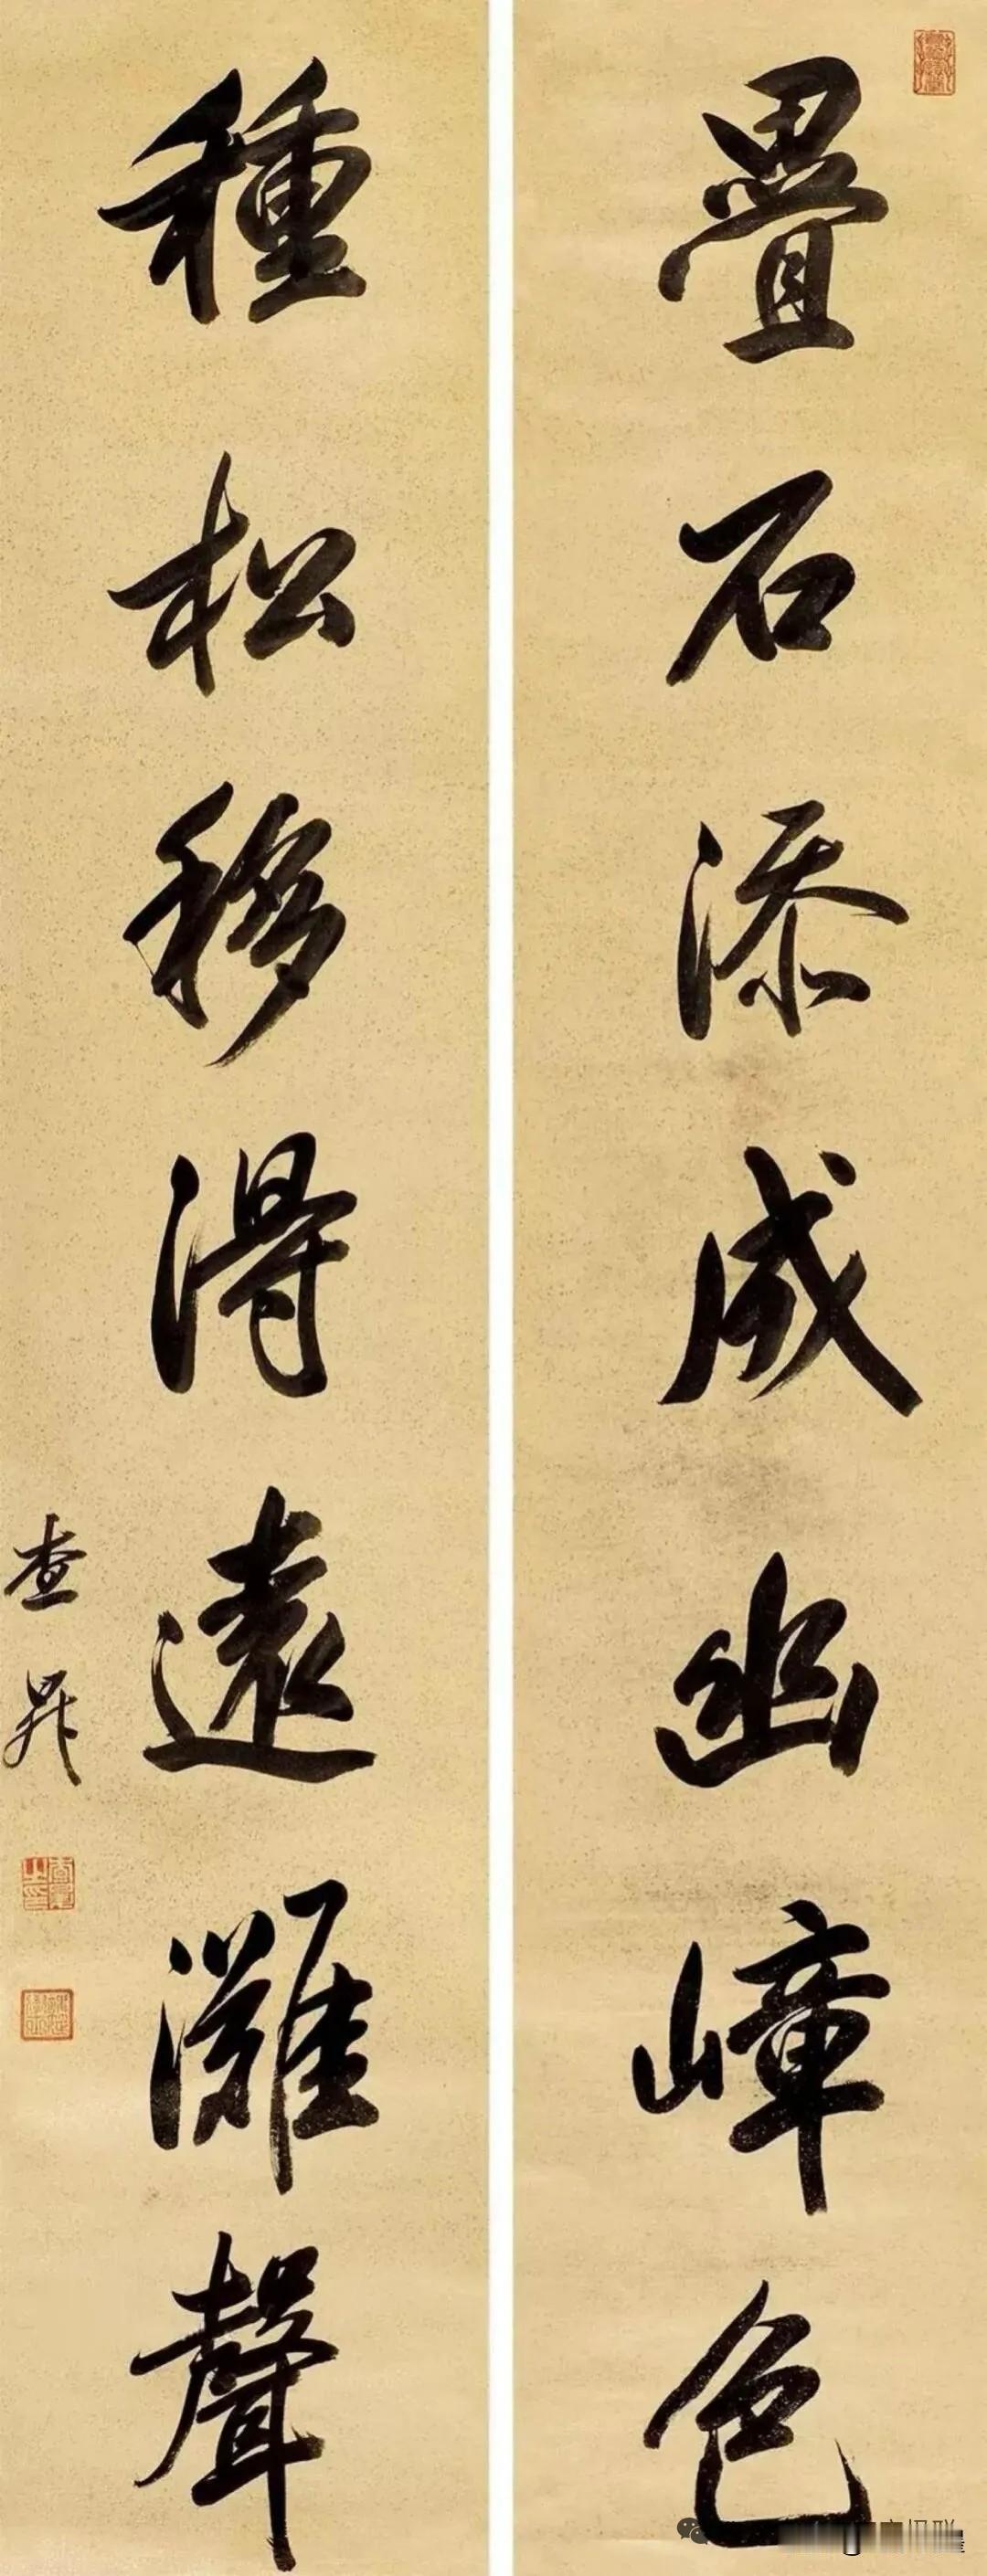 疊石添成幽嶂色
種松移得遠灘聲
查昇